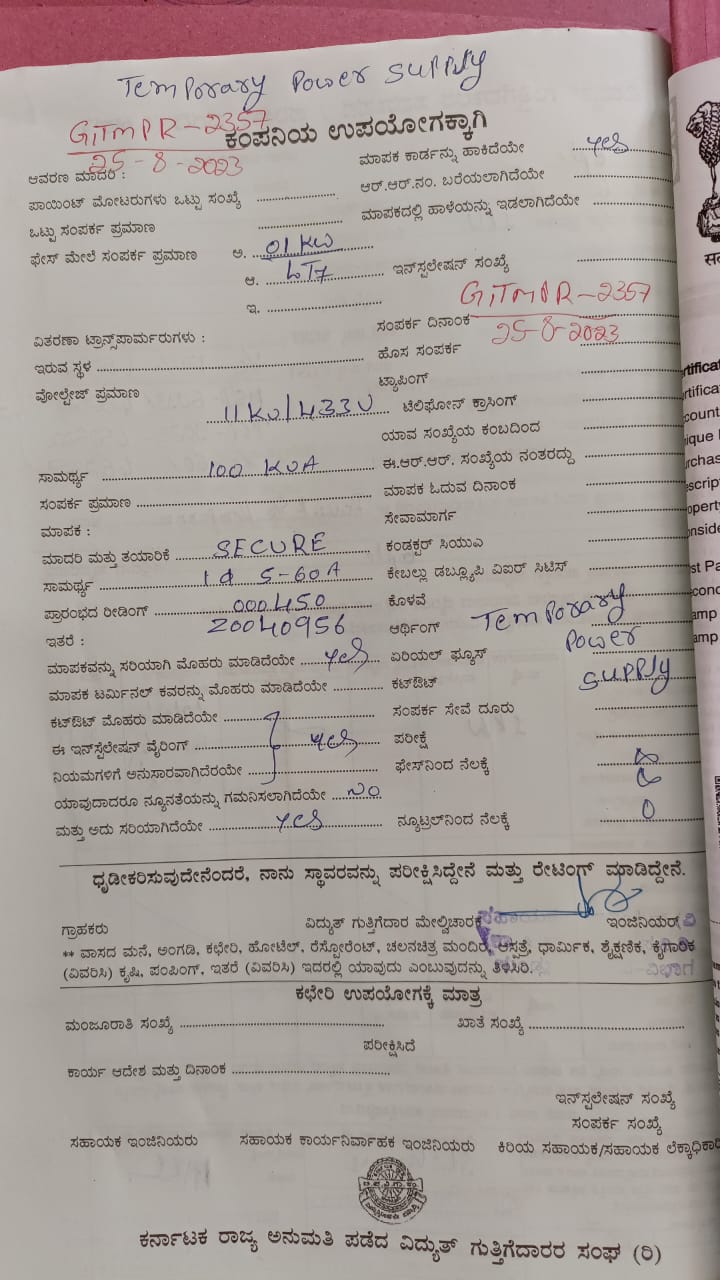 Temporary Power Supply
GITMPR-2357
25-8-2023
ಕಂಪನಿಯ ಉಪಯೋಗಕ್ಕಾಗಿ
ಆವರಣ ಮಾದರಿ :
ಮಾಪಕ ಕಾರ್ಡನ್ನು ಹಾಕಿದೆಯೇ yes
ಪಾಯಿಂಟ್ ಮೋಟರುಗಳು ಒಟ್ಟು ಸಂಖ್ಯೆ
ಆರ್.ಆರ್.ನಂ. ಬರೆಯಲಾಗಿದೆಯೇ
ಒಟ್ಟು ಸಂಪರ್ಕ ಪ್ರಮಾಣ
ಮಾಪಕದಲ್ಲಿ ಹಾಳೆಯನ್ನು ಇಡಲಾಗಿದೆಯೇ
ಫೇಸ್ ಮೇಲೆ ಸಂಪರ್ಕ ಪ್ರಮಾಣ ಅ. 01 KW
ಆ. LT7
ಇನ್‌ಸ್ಟಲೇಷನ್ ಸಂಖ್ಯೆ
ಇ.
GITMPR-2357
ಸಂಪರ್ಕ ದಿನಾಂಕ 25-8-2023
ವಿತರಣಾ ಟ್ರಾನ್ಸ್‌ಪಾರ್ಮರುಗಳು :
ಹೊಸ ಸಂಪರ್ಕ
ಇರುವ ಸ್ಥಳ
ಟ್ಯಾಪಿಂಗ್
ವೋಲ್ಟೇಜ್ ಪ್ರಮಾಣ 11KV/433V
ಟೆಲಿಫೋನ್ ಕ್ರಾಸಿಂಗ್
ಯಾವ ಸಂಖ್ಯೆಯ ಕಂಬದಿಂದ
ಸಾಮರ್ಥ್ಯ 100 KVA
ಈ.ಆರ್.ಆರ್. ಸಂಖ್ಯೆಯ ನಂತರದ್ದು
ಸಂಪರ್ಕ ಪ್ರಮಾಣ
ಮಾಪಕ ಓದುವ ದಿನಾಂಕ
ಮಾಪಕ :
ಸೇವಾಮಾರ್ಗ
ಮಾದರಿ ಮತ್ತು ತಯಾರಿಕೆ SECURE
ಕಂಡಕ್ಟರ್ ಸಿಯುಎ
ಸಾಮರ್ಥ್ಯ 1Φ 5-60A
ಕೇಬಲ್ಲು ಡಬ್ಲ್ಯೂಪಿ ವಿಐರ್ ಸಿಟಿಸ್
ಪ್ರಾರಂಭದ ರೀಡಿಂಗ್ 000450
ಕೊಳವೆ
ಇತರೆ : Z0040956
ಆರ್ಥಿಂಗ್ Temporary
Power
Supply
ಮಾಪಕವನ್ನು ಸರಿಯಾಗಿ ಮೊಹರು ಮಾಡಿದೆಯೇ yes
ಏರಿಯಲ್ ಫ್ಯೂಸ್
ಮಾಪಕ ಟರ್ಮಿನಲ್ ಕವರನ್ನು ಮೊಹರು ಮಾಡಿದೆಯೇ
ಕಟ್‌ಔಟ್
ಕಟ್‌ಔಟ್ ಮೊಹರು ಮಾಡಿದೆಯೇ
ಸಂಪರ್ಕ ಸೇವೆ ದೂರು
ಈ ಇನ್‌ಸ್ಟಲೇಷನ್ ವೈರಿಂಗ್ yes
ಪರೀಕ್ಷೆ
ನಿಯಮಗಳಿಗೆ ಅನುಸಾರವಾಗಿದೆರಯೇ
ಫೇಸ್‌ನಿಂದ ನೆಲಕ್ಕೆ
ಯಾವುದಾದರೂ ನ್ಯೂನತೆಯನ್ನು ಗಮನಿಸಲಾಗಿದೆಯೇ NO
ಮತ್ತು ಅದು ಸರಿಯಾಗಿದೆಯೇ yes
ನ್ಯೂಟ್ರಲ್‌ನಿಂದ ನೆಲಕ್ಕೆ 0
ಧೃಡೀಕರಿಸುವುದೇನೆಂದರೆ, ನಾನು ಸ್ಥಾವರವನ್ನು ಪರೀಕ್ಷಿಸಿದ್ದೇನೆ ಮತ್ತು ರೇಟಿಂಗ್ ಮಾಡಿದ್ದೇನೆ.
ಗ್ರಾಹಕರು ವಿದ್ಯುತ್ ಗುತ್ತಿಗೆದಾರ ಮೇಲ್ವಿಚಾರಕ ಇಂಜಿನಿಯರ್
** ವಾಸದ ಮನೆ, ಅಂಗಡಿ, ಕಛೇರಿ, ಹೋಟೆಲ್, ರೆಸ್ಟೋರೆಂಟ್, ಚಲನಚಿತ್ರ ಮಂದಿರ, ಆಸ್ಪತ್ರೆ, ಧಾರ್ಮಿಕ, ಶೈಕ್ಷಣಿಕ, ಕೈಗಾರಿಕ
(ವಿವರಿಸಿ) ಕೃಷಿ, ಪಂಪಿಂಗ್, ಇತರೆ (ವಿವರಿಸಿ) ಇದರಲ್ಲಿ ಯಾವುದು ಎಂಬುವುದನ್ನು ತಿಳಿಸಿರಿ.
ಕಛೇರಿ ಉಪಯೋಗಕ್ಕೆ ಮಾತ್ರ
ಮಂಜೂರಾತಿ ಸಂಖ್ಯೆ ಖಾತೆ ಸಂಖ್ಯೆ
ಪರೀಕ್ಷಿಸಿದೆ
ಕಾರ್ಯ ಆದೇಶ ಮತ್ತು ದಿನಾಂಕ
ಇನ್‌ಸ್ಟಲೇಷನ್ ಸಂಖ್ಯೆ
ಸಂಪರ್ಕ ಸಂಖ್ಯೆ
ಸಹಾಯಕ ಇಂಜಿನಿಯರು ಸಹಾಯಕ ಕಾರ್ಯನಿರ್ವಾಹಕ ಇಂಜಿನಿಯರು ಕಿರಿಯ ಸಹಾಯಕ/ಸಹಾಯಕ ಲೆಕ್ಕಾಧಿಕಾರಿ
ಕರ್ನಾಟಕ ರಾಜ್ಯ ಅನುಮತಿ ಪಡೆದ ವಿದ್ಯುತ್ ಗುತ್ತಿಗೆದಾರರ ಸಂಘ (ರಿ)